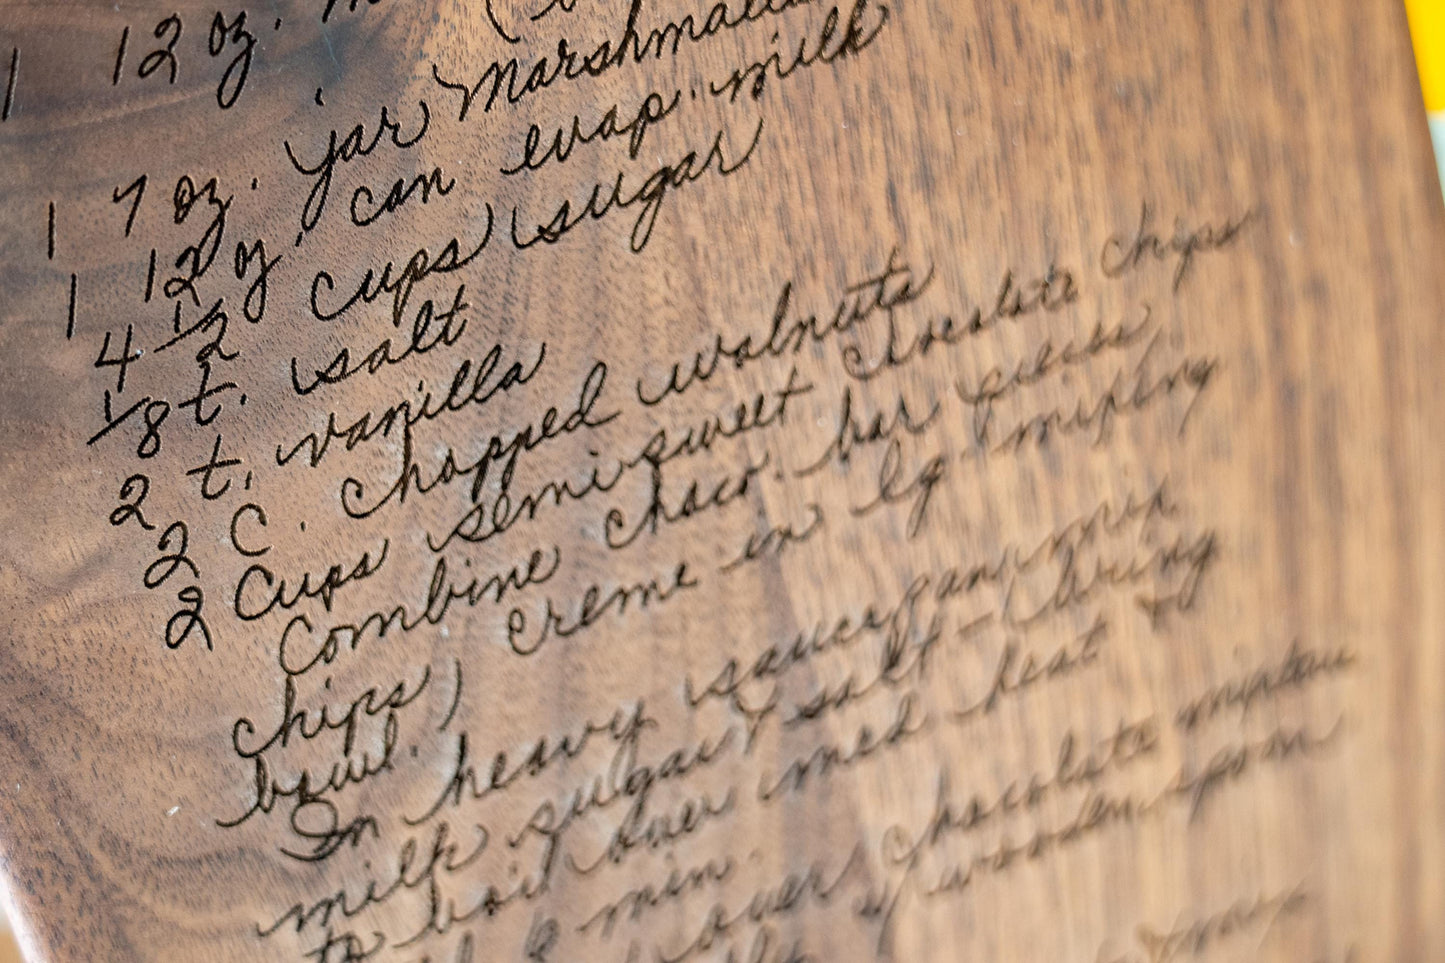 1 12 oz.
1 7 oz. jar Marshmallo
1 12 oz. can evap. milk
4 1/2 cups sugar
1/8 t. salt
2 t. vanilla
2 C. chopped walnuts
2 Cups semi sweet chocolate chips
Combine choco. bar pieces,
chips, creme in lg mixing
bowl.
In heavy sauce pan, mix
milk sugar & salt - bring
to boil over med heat &
6 min.
over chocolate mixture
w/ wooden spoon